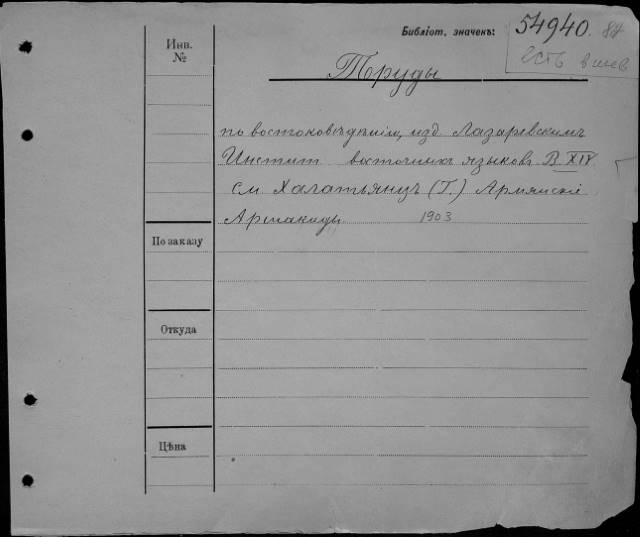 Библіот. значекъ: 54940. 84
есть в шев
Инв. №
Труды
по востоковѣдѣнію, изд. Лазаревскимъ
Инстит восточных языковъ. В XIV
см Халатьянцъ (Г.) Армянскіе
Аршакиды 1903
По заказу
Откуда
Цѣна